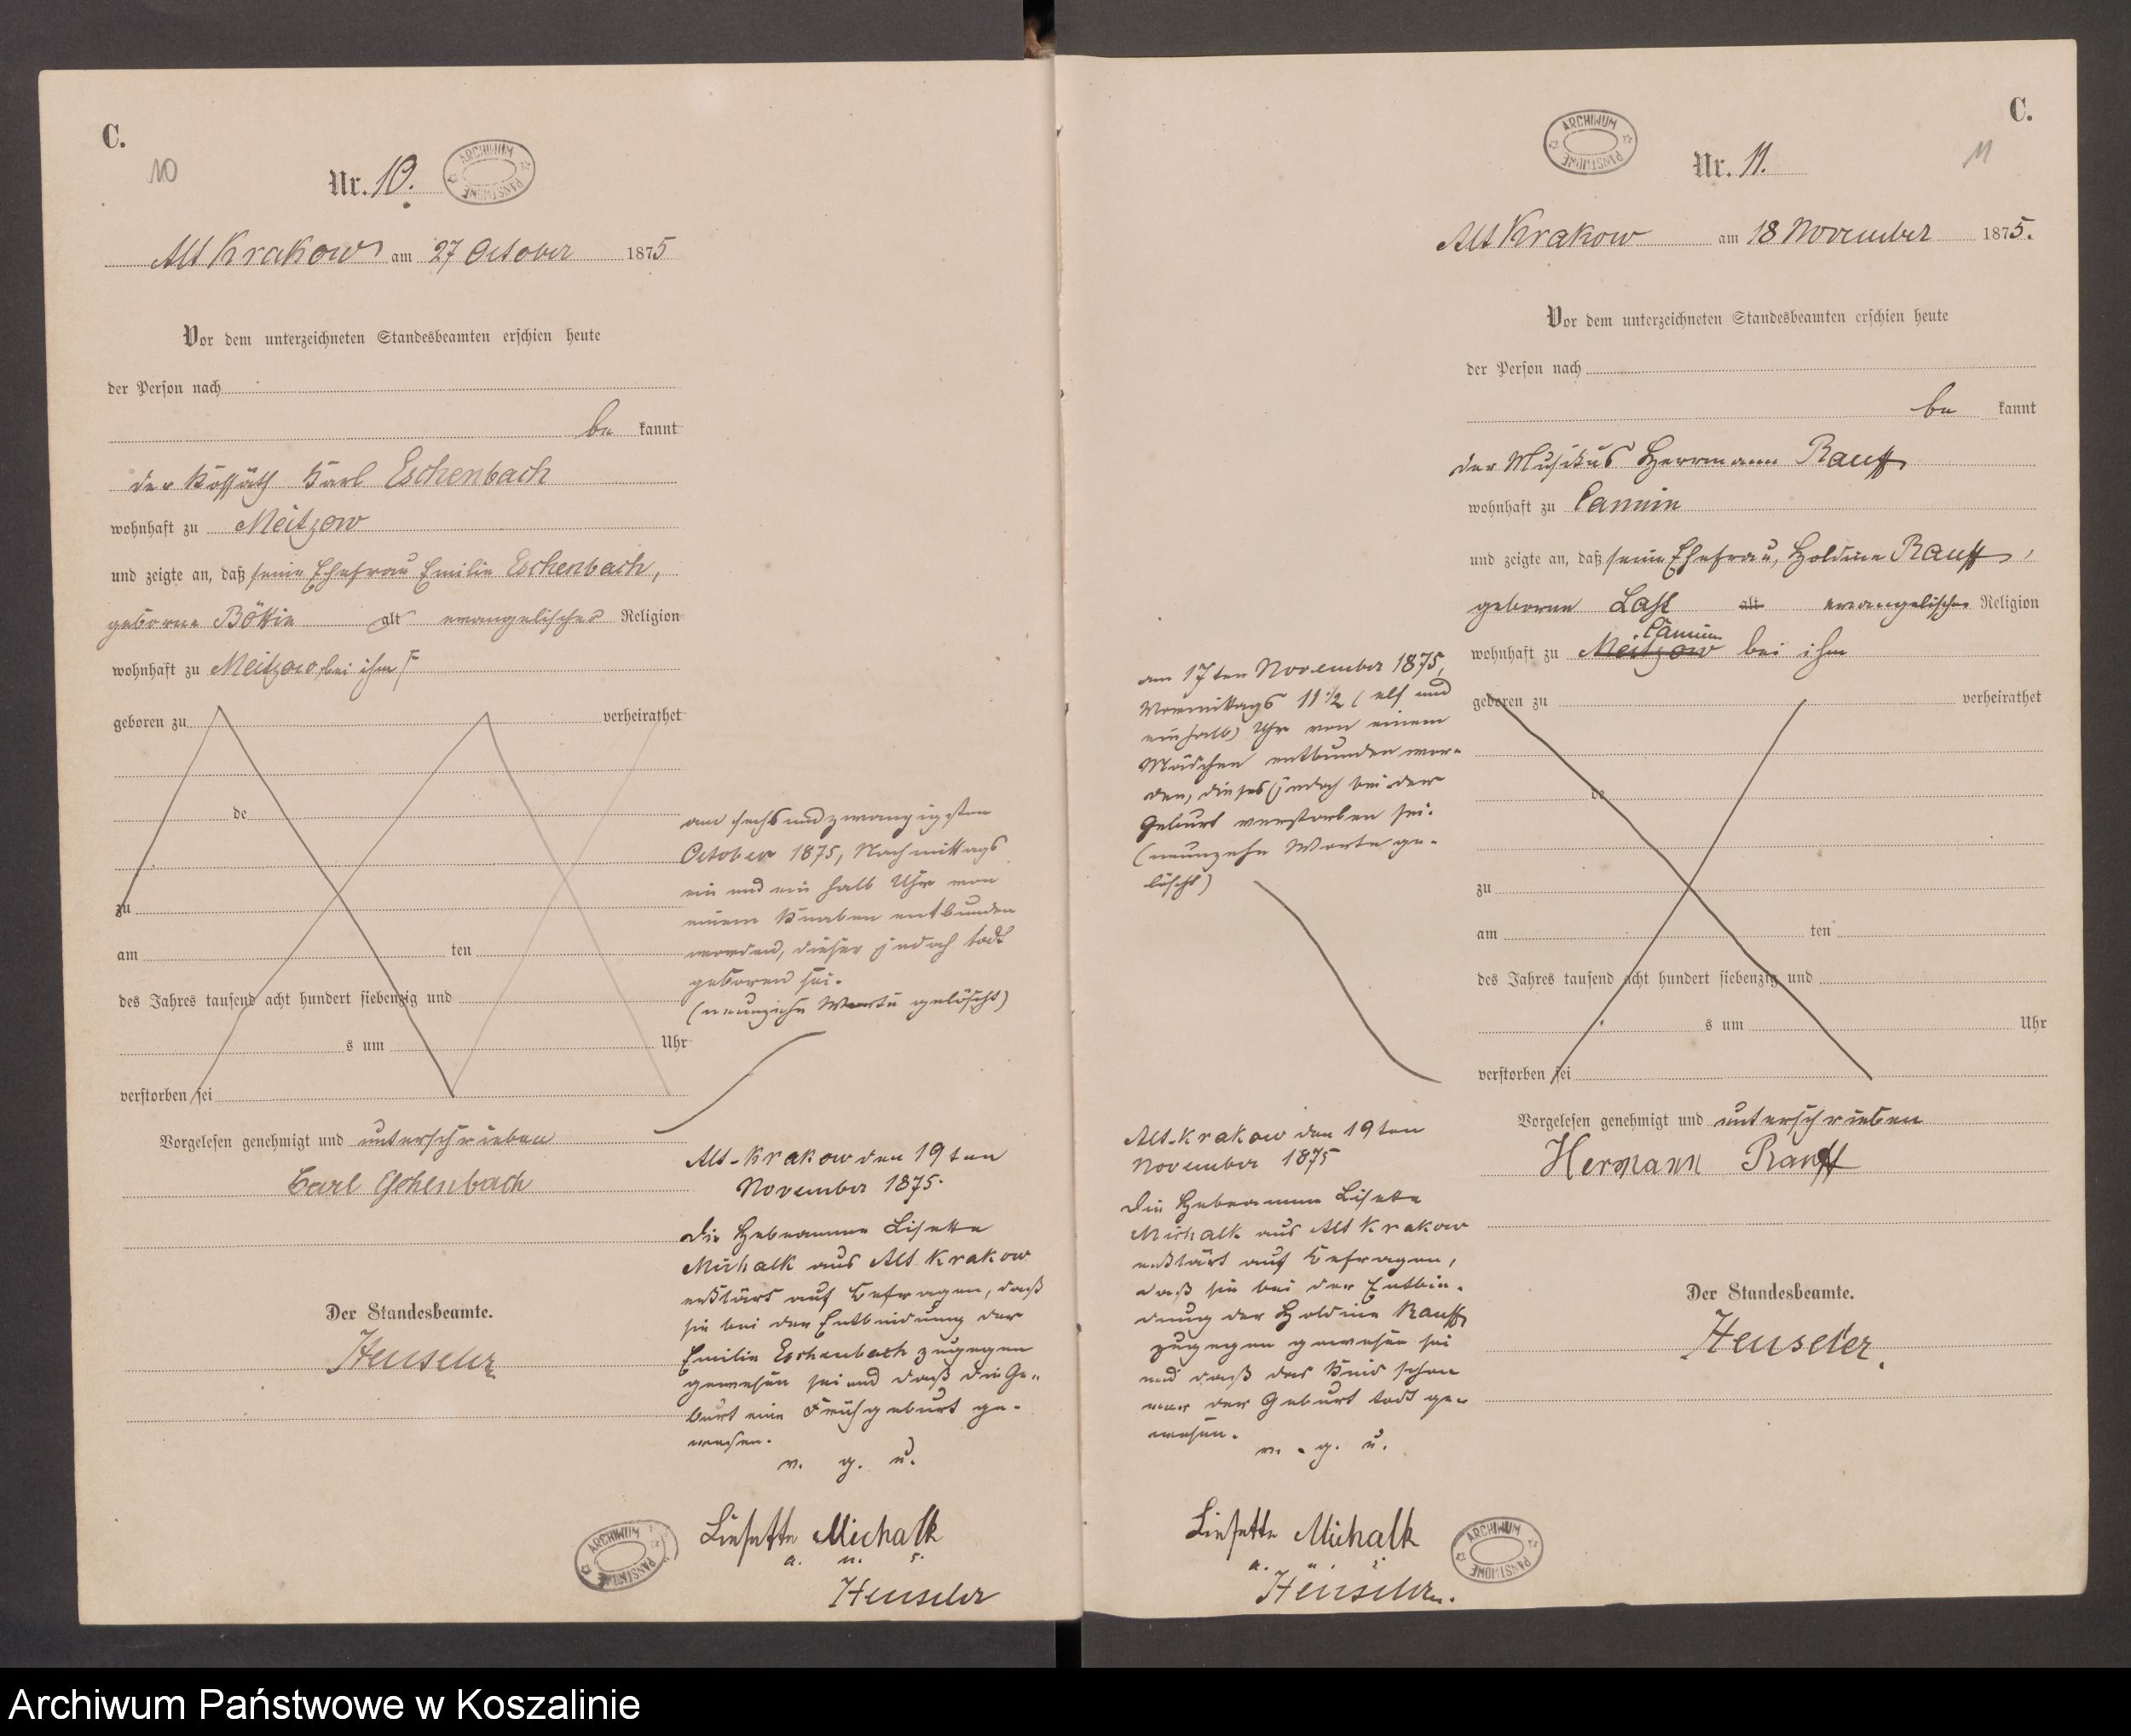 C.
10
Nr. 10.
ARCHIWUM PAŃSTWOWE
Alt Krakow am 27 October 1875
Vor dem unterzeichneten Standesbeamten erschien heute
der Person nach
be kannt
der Kossäth Karl Eschenbach
wohnhaft zu Meitzow
und zeigte an, daß seine Ehefrau Emilie Eschenbach,
geborne alt evangelischer Religion
wohnhaft zu Meitzow, bei ihm
geboren zu verheirathet
de
zu
am ten
des Jahres tausend acht hundert siebenzig und
s um Uhr
verstorben sei
am sechsundzwanzigsten
October 1875, Nachmittags
ein und ein halb Uhr von
einem Knaben entbunden
worden, dieser jedoch todt
geboren sei.
(neunzehn Worte gelöscht)
Vorgelesen genehmigt und unterschrieben
Carl Eschenbach
Der Standesbeamte.
Henseler
Alt-Krakow den 19ten
November 1875.
Die Hebeamme Lisette
Michalk aus Alt Krakow
erklärt auf Befragen, daß
sie bei der Entbindung der
Emilie Eschenbach zugegen
gewesen sei und daß die Ge-
burt eine Frühgeburt ge-
wesen.
v. g. u.
Liesette Michalk
a. u. s.
Henseler
ARCHIWUM PAŃSTWOWE
C.
11
Nr. 11.
ARCHIWUM PAŃSTWOWE
Alt Krakow am 18 November 1875.
Vor dem unterzeichneten Standesbeamten erschien heute
der Person nach
be kannt
der Musikus Herrmann Rauff
wohnhaft zu Cammin
und zeigte an, daß seine Ehefrau, Holdine Rauff,
geborne Last alt evangelischer Religion
Cammin
wohnhaft zu Meitzow bei ihm
geboren zu verheirathet
de
zu
am ten
des Jahres tausend acht hundert siebenzig und
s um Uhr
verstorben sei
am 17ten November 1875,
Vormittags 11 1/2 (elf und
einhalb) Uhr von einem
Mädchen entbunden wor-
den, dieses jedoch bei der
Geburt verstorben sei.
(neunzehn Worte ge-
löscht)
Vorgelesen genehmigt und unterschrieben
Hermann Rauff
Der Standesbeamte.
Henseler.
Alt-Krakow den 19ten
November 1875
Die Hebeamme Lisette
Michalk aus Alt Krakow
erklärt auf Befragen,
daß sie bei der Entbin-
dung der Holdine Rauff
zugegen gewesen sei
und daß das Kind schon
vor der Geburt todt ge-
wesen.
v. g. u.
Liesette Michalk
a. u. s.
Henseler.
ARCHIWUM PAŃSTWOWE
Archiwum Państwowe w Koszalinie